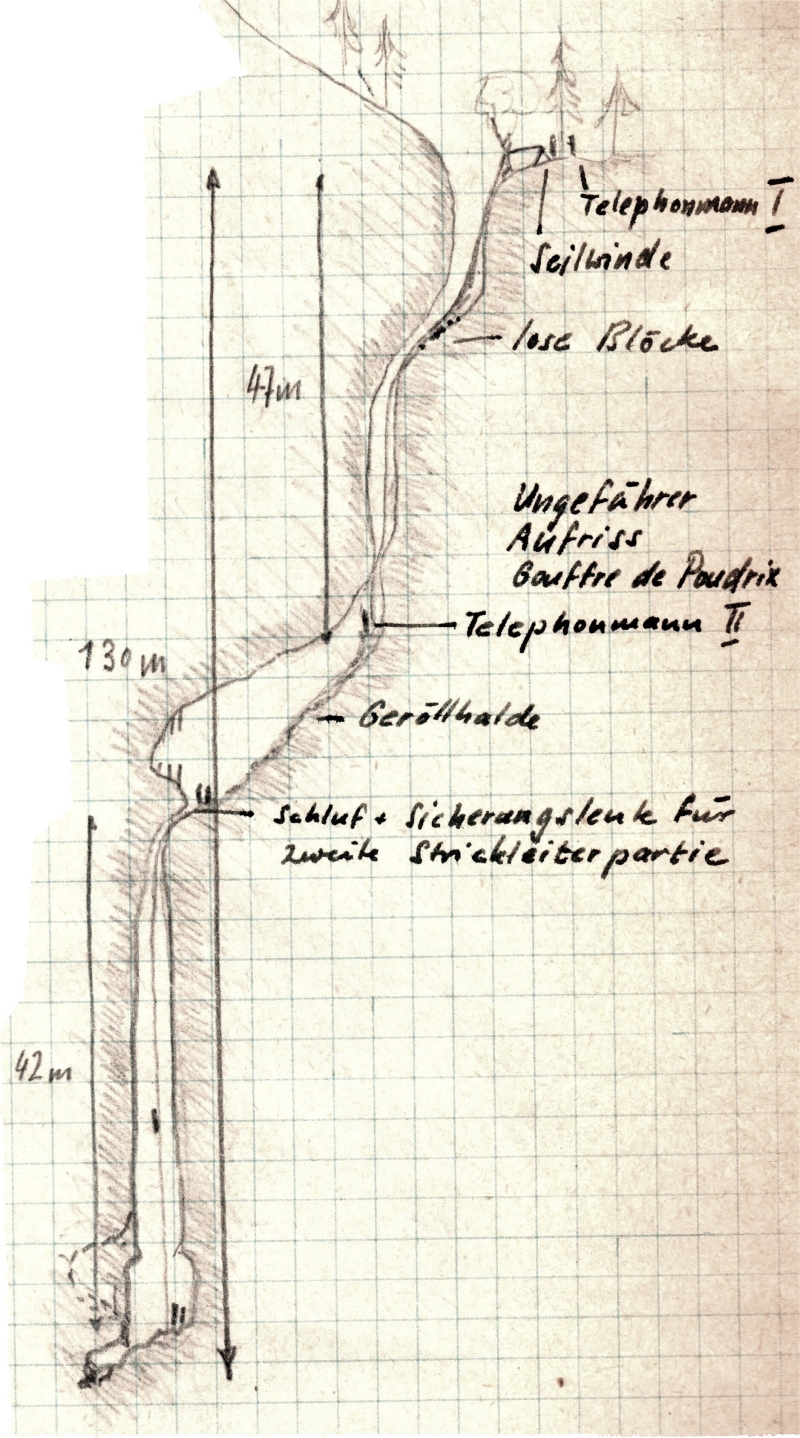 Telephonmann I
Seilwinde
lose Blöcke
47m
Ungefährer
Aufriss
Gouffre de Poudrix
Telephonmann II
130m
Geröllhalde
Schluf + Sicherungsleute für
zweite Strickleiterpartie
42m